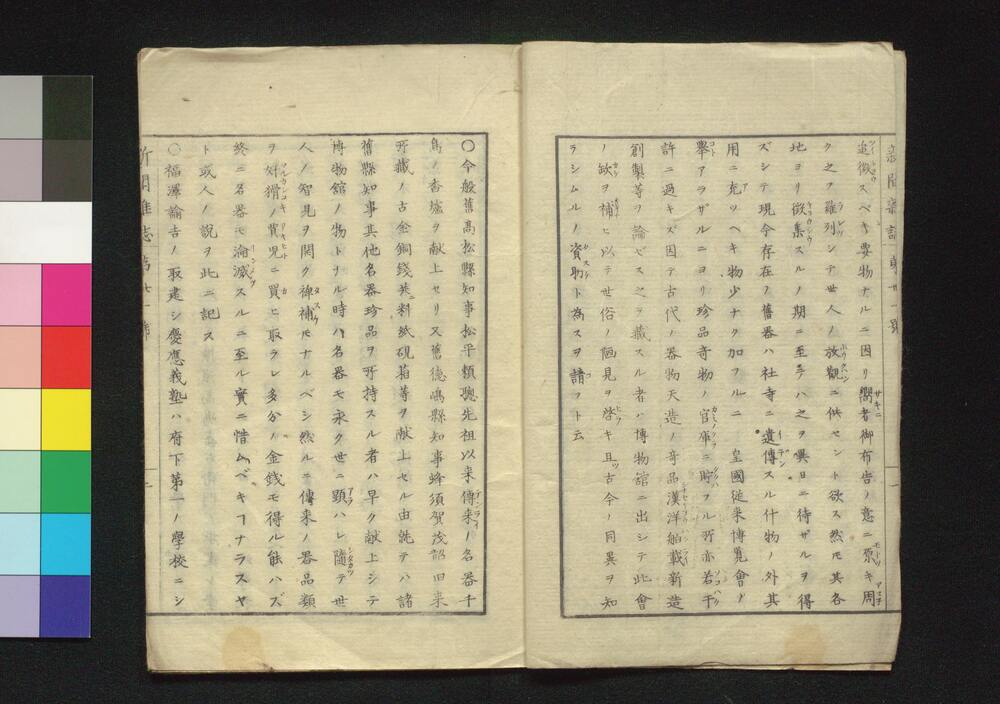 追徴スベキ要物ナルニ因リ嚮者御布告ノ意ニ原キ周
ク之ヲ羅列シテ世人ノ放觀ニ供セント欲ス然モ其各
地ヨリ徴集スルノ期ニ至テハ之ヲ異日ニ待ザルヲ得
ズシテ現今存在ノ舊器ハ社寺ニ遺傳スル什物ノ外其
用ニ充ツヘキ物少ナク加フルニ 皇國從来博覧會ノ
擧アラザルニヨリ珍品奇物ノ官庫ニ貯フル所亦若干
許ニ過キズ因テ古代ノ器物天造ノ奇品漢洋舶載新造
創製等ヲ論ゼス之ヲ藏スル者ハ博物館ニ出シテ此會
ノ欲ヲ補ヒ以テ世俗ノ陋見ヲ啓キ且古今ノ同異ヲ知
ラシムルノ資助ト為スヲ請フト云
〇今般舊高松縣知事松平頼聰先祖以来傳来ノ名器千
鳥ノ香爐ヲ献上セリ又舊德嶋縣知事蜂須賀茂韶旧来
所藏ノ古金銅錢并ニ料紙硯箱等ヲ献上セル由就テハ諸
舊縣知事其他名器珍品ヲ所持スル者ハ早ク献上シテ
博物館ノ物トナル時ハ名器モ永ク世ニ顕ハレ隨テ世
人ノ智見ヲ開ク裨補モナルベシ然ルニ傳来ノ器品類
ヲ奸猾ノ賈児ニ買ヒ取ラレ多分ノ金銭モ得ル能ハズ
終ニ名器モ淪滅スルニ至ル實ニ惜ムベキヿナラスヤ
ト或人ノ説ヲ此ニ記ス
〇福澤諭吉ノ取建シ慶應義塾ハ府下第一ノ學校ニシ
新聞雑誌第廿一號